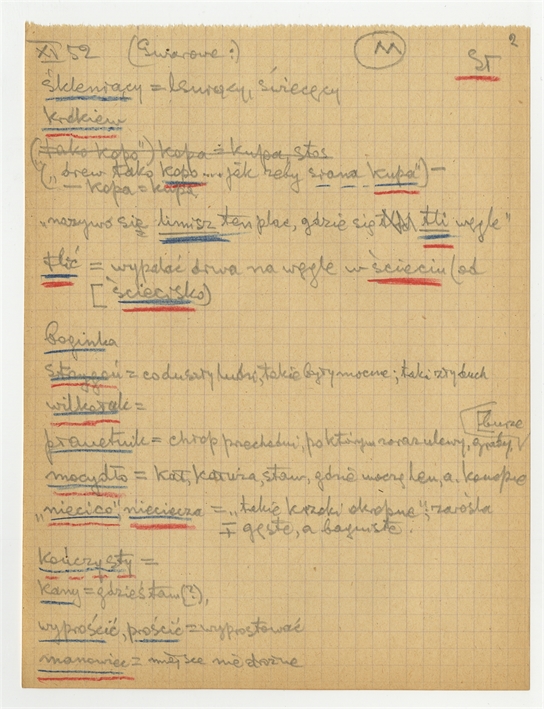 2
XI 52 (Gwarowe:) M ST
śkleniący = lśniący, świecący
krokiew
("tako kopo") kopa = kupa, stos
("drew tako kopo... jek zeby srana kupa") –
– kopa = kupa
"nazywo się limisz ten plac, gdzie się tli węgle"
tlić = wypalać drwa na węgle w ścięciu (od
[ściecisko)
boginka
strzygoń = co duszyły ludzi, takie były mocne; taki zły duch
wilkorak =
płanetnik = chłop przechodni, po którym zaraz ulewy, grady,
[burze
mocydło = kał, kałuża, staw, gdzie moczę len, a. konopie
"nięcico", nieciecza = "takie krzoki okropne"; zarośla
I gęste, a bagniste.
kończysty =
kany = gdzieś tam (?),
wyprościć, prościć = wyprostować
manowiec = miejsce niedrożne